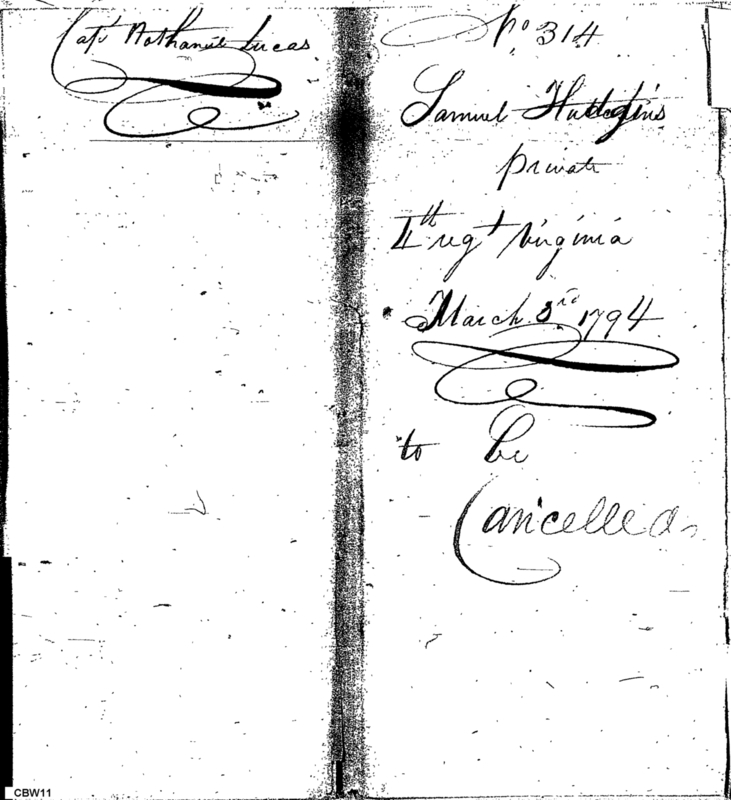 Capt Nathaniel Lucas
No 314
Samuel Hudgins
private
4th regt Virginia
March 3rd 1794
to be
Cancelled
CBW11